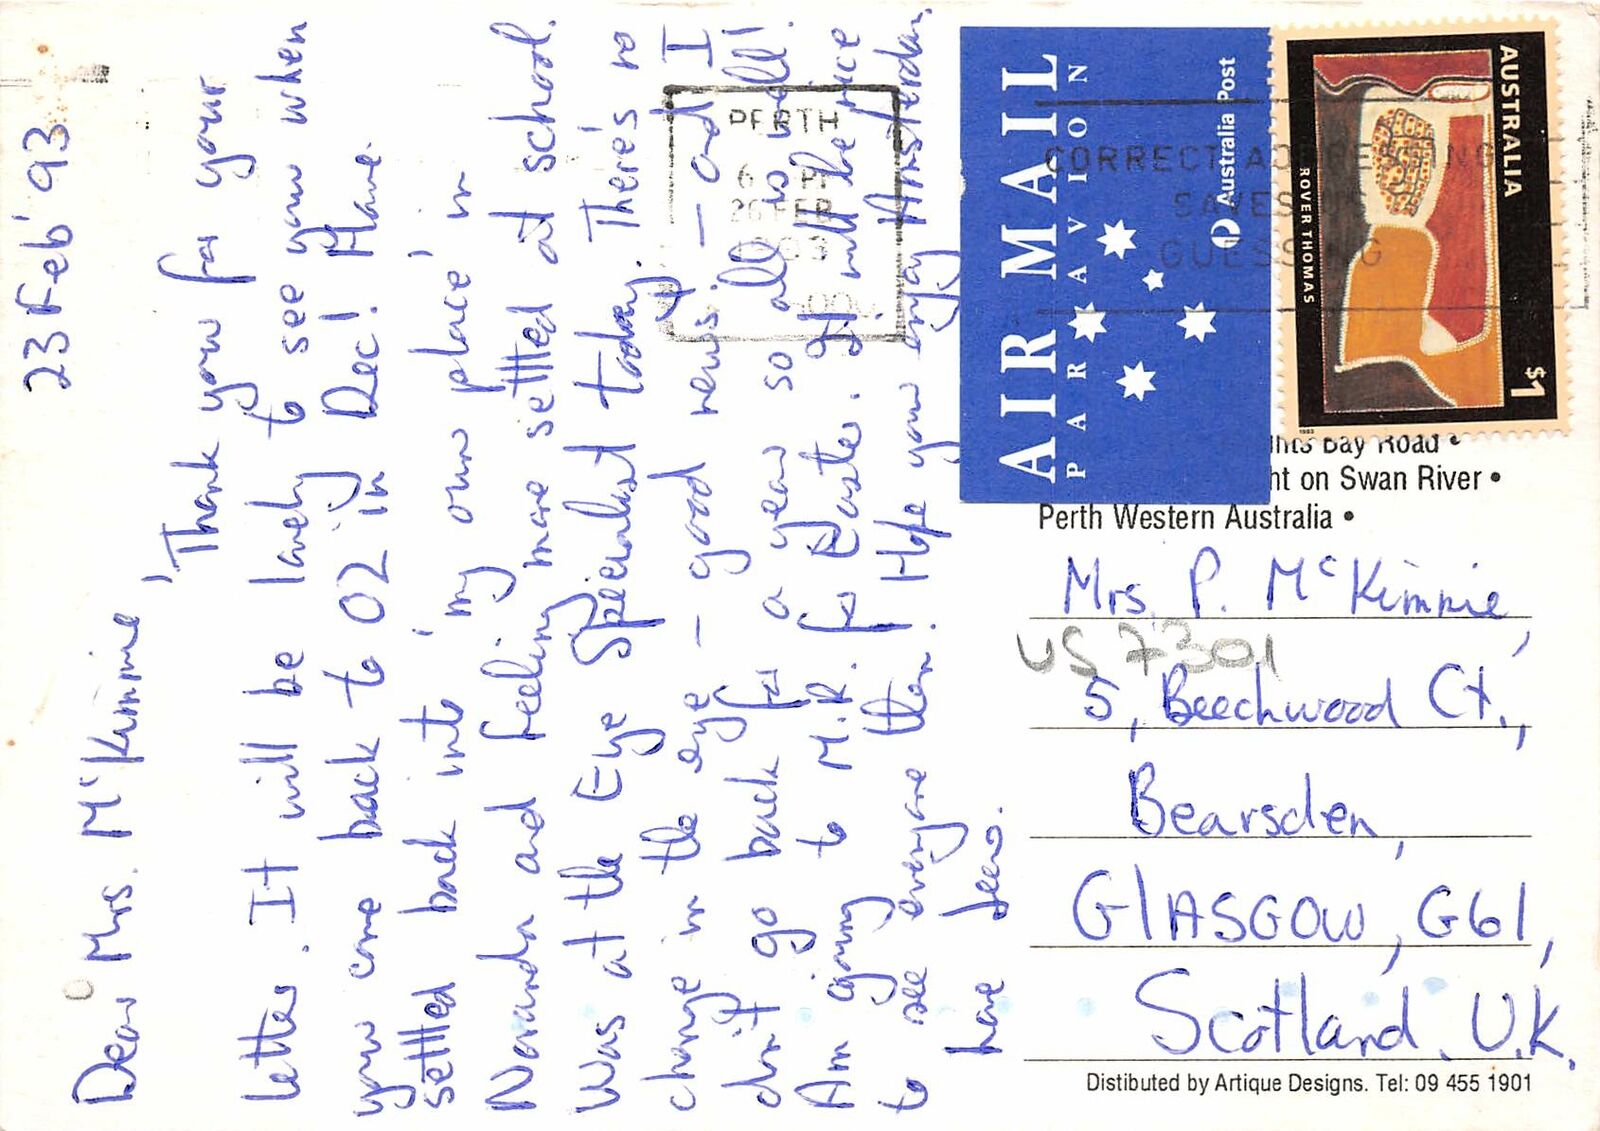 23 Feb '93
Dear Mrs. McKimmie,
Thank you for your
letter. It will be lovely to see you when
you come back to OZ in Dec! Have
settled back into 'my own place' in
Noranda and feeling more settled at school.
Was at the Eye Specialist today. There's no
change in the eye - good news. - and I
don't go back for a year so all is well!
Am going to M.R. for Easter. It will be nice
to see everyone then. Hope you enjoy Amsterdam.
have been.
AIR MAIL
PAR AVION
Australia Post
AUSTRALIA
ROVER THOMAS
$1
1993
PERTH
6 PM
26 FEB
CORRECT ADDRESSING
SAVES US
GUESSING
Bay Road •
on Swan River •
Perth Western Australia •
Mrs. P. McKimmie,
US 7301
5, Beechwood Ct.,
Bearsden,
GLASGOW, G61,
Scotland, U.K.
Distibuted by Artique Designs. Tel: 09 455 1901